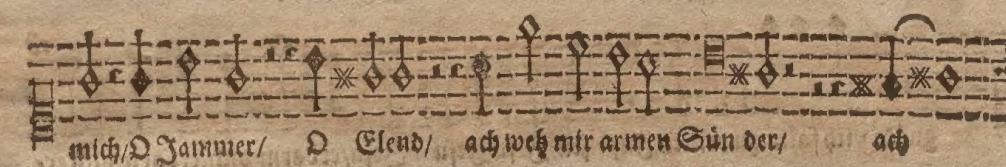 mich/O Jammer/ O Elend/ ach weh mir armen Sün der/ ach